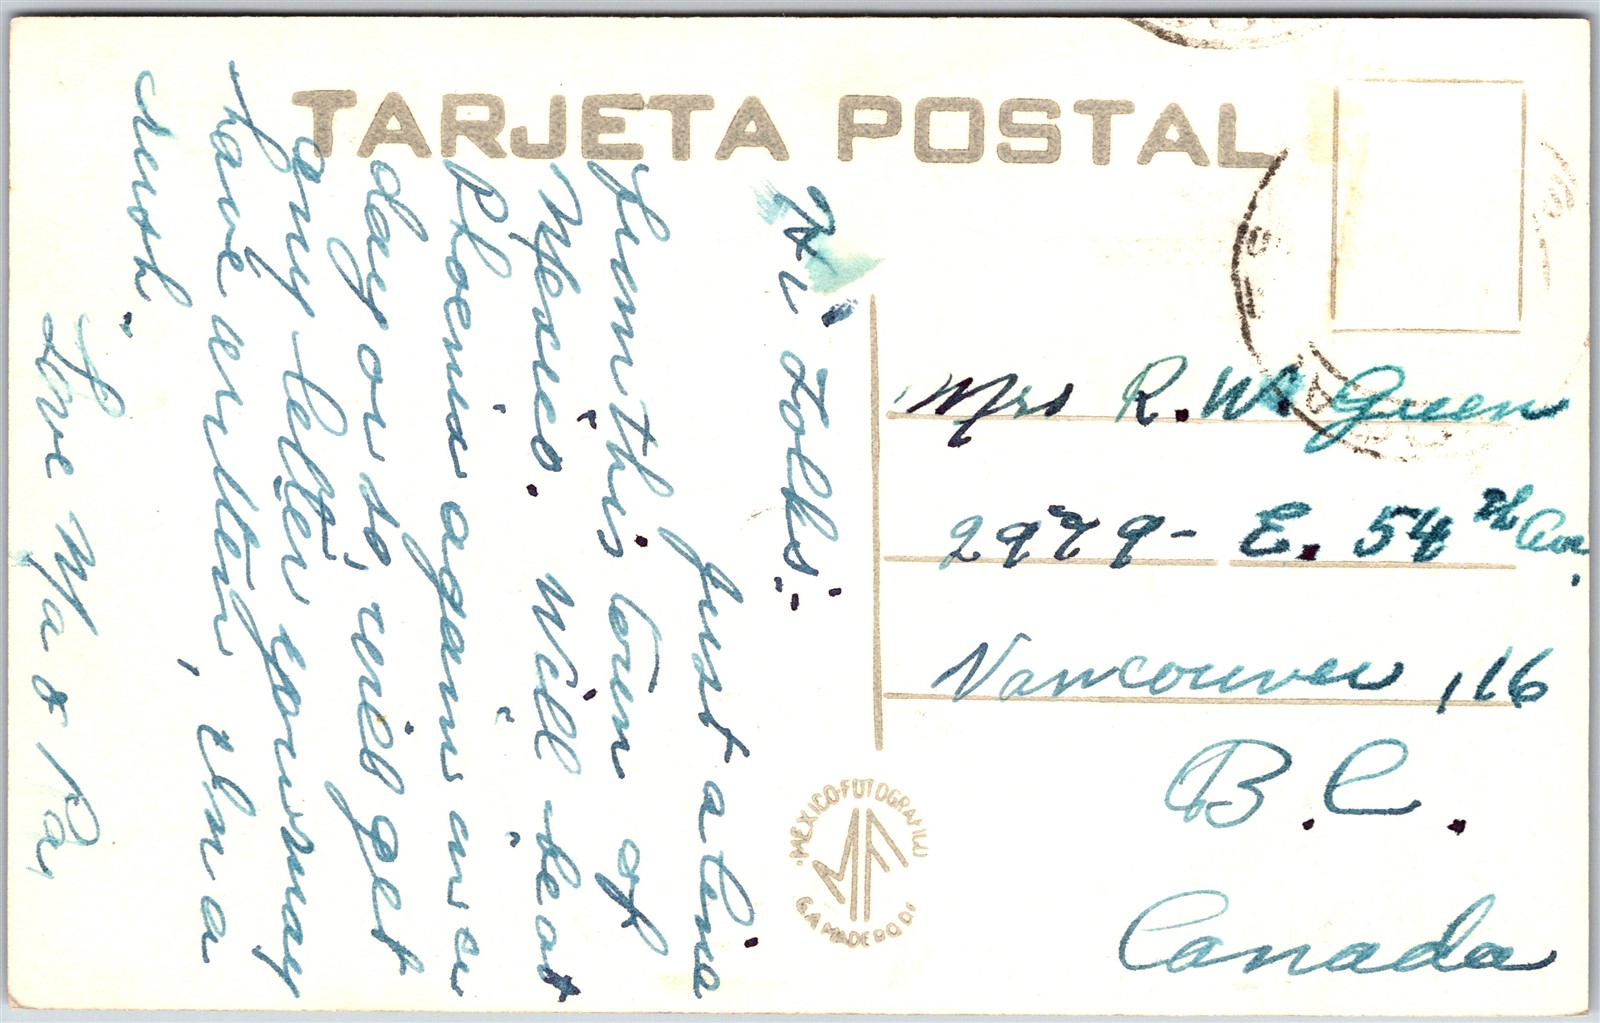 TARJETA POSTAL
Hi Folks:-
Just a line
from this town of
Mexico. Will be at
Phoenix again in a
day or so, will get
any letter you may
have written, in a
rush.
Love Ma & Pa,
Mrs R. W. Green
2979- E. 54th Ave,
Vancouver, 16
B.C.
Canada
MEXICO-FOTOGRAFICO
MF
G.A MADERO D.F